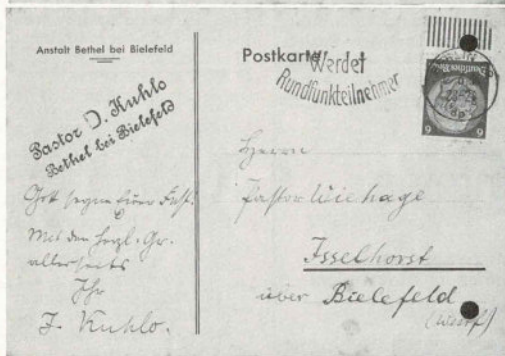 Anstalt Bethel bei Bielefeld
Pastor D. Kuhlo
Bethel bei Bielefeld
Gott segne Euer Fest!
Mit den herzl. Gr.
allerseits
Ihr
J. Kuhlo.
Postkarte
Werdet
Rundfunkteilnehmer
Deutsches Reich
6
6
Herrn
Pastor Wiehage
Isselhorst
über Bielefeld
(Westf)